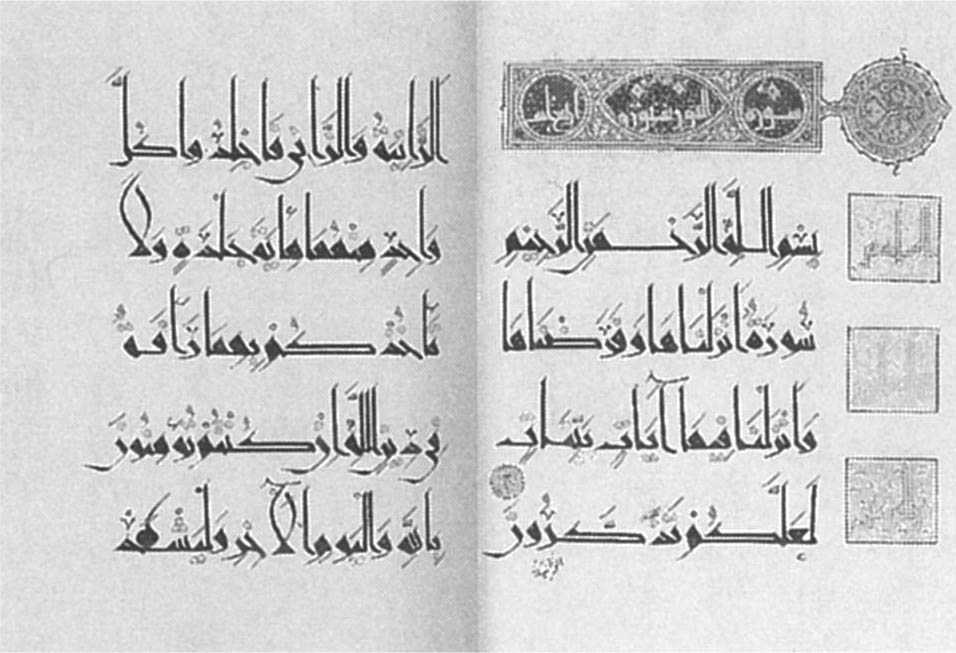 سورة النور
بسم الله الرحمن الرحيم
سورة انزلناها وفرضناها
وانزلنا فيها آيات بينات
لعلكم تذكرون
الزانية والزاني فاجلدوا كل
واحد منهما مائة جلدة ولا
تأخذكم بهما رأفة
في دين الله ان كنتم تؤمنون
بالله واليوم الآخر وليشهد